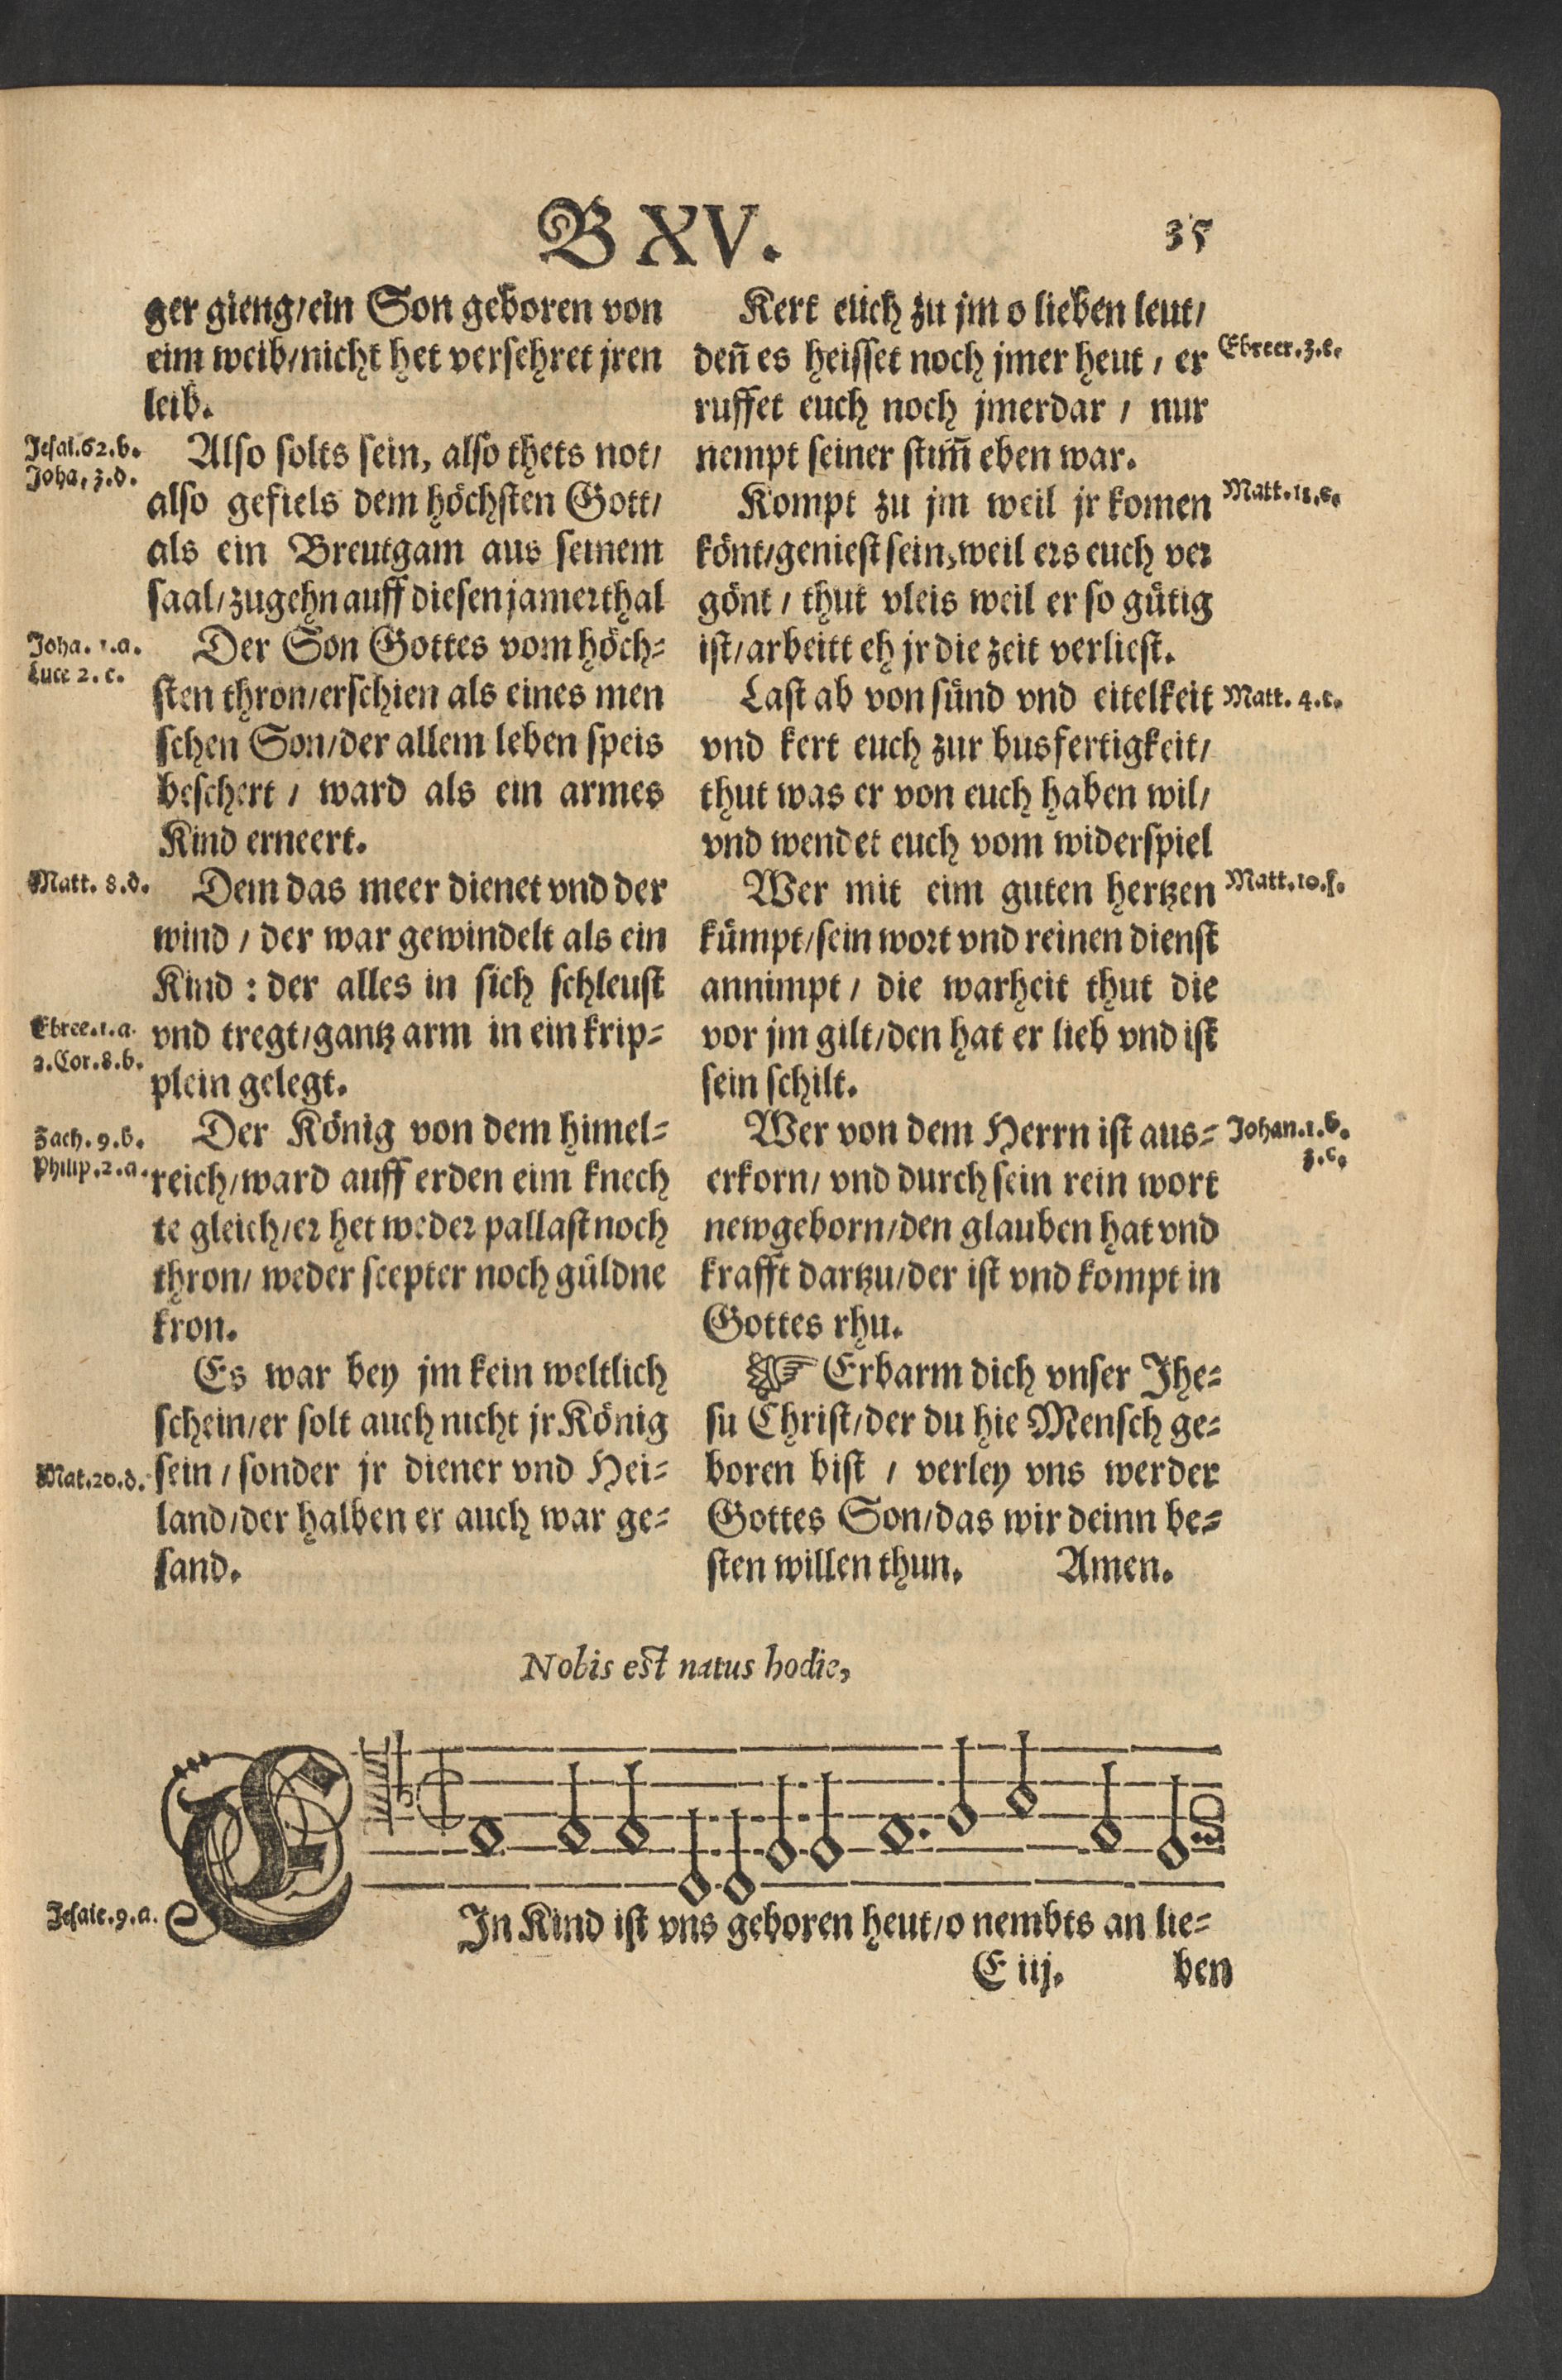 B XV.
35
ger gieng/ein Son geboren von
eim weib/nicht het versehret jren
leib.
Jesai.62.b.
Joha. 3.d.
Also solts sein, also thets not/
also gefiels dem höchsten Gott/
als ein Breutgam aus seinem
saal/zugehn auff diesen jamerthal
Joha. 1.a.
Luce 2.c.
Der Son Gottes vom höch=
sten thron/erschien als eines men
schen Son/der allem leben speis
beschert / ward als ein armes
Kind erneert.
Matt. 8.d.
Dem das meer dienet vnd der
wind / der war gewindelt als ein
Kind : der alles in sich schleust
Ebree.1.a.
2.Cor.8.b.
vnd tregt/gantz arm in ein krip=
plein gelegt.
Zach. 9.b.
Philip.2.a.
Der König von dem himel=
reich/ward auff erden eim knech
te gleich/er het weder pallast noch
thron/ weder scepter noch güldne
kron.
Es war bey jm kein weltlich
schein/er solt auch nicht jr König
Mat.20.d.
sein / sonder jr diener vnd Hei=
land/der halben er auch war ge=
sand.
Kert euch zu jm o lieben leut/
deñ es heisset noch jmer heut / er
Ebreer.3.c.
ruffet euch noch jmerdar / nur
nempt seiner stim̃ eben war.
Kompt zu jm weil jr komen
Matt.11.e.
könt/geniest sein, weil ers euch ver
gönt / thut vleis weil er so gütig
ist/arbeitt eh jr die zeit verliest.
Last ab von sünd vnd eitelkeit
Matt. 4.c.
vnd kert euch zur busfertigkeit/
thut was er von euch haben wil/
vnd wendet euch vom widerspiel
Wer mit eim guten hertzen
Matt.10.f.
kümpt/sein wort vnd reinen dienst
annimpt / die warheit thut die
vor jm gilt/den hat er lieb vnd ist
sein schilt.
Wer von dem Herrn ist aus=
Johan.1.b.
3.c.
erkorn/ vnd durch sein rein wort
newgeborn/den glauben hat vnd
krafft dartzu/der ist vnd kompt in
Gottes rhu.
☞ Erbarm dich vnser Jhe=
su Christ/der du hie Mensch ge=
boren bist / verley vns werder
Gottes Son/das wir deinn be=
sten willen thun. Amen.
Nobis est natus hodie,
Jesaie.9.a.
EJn Kind ist vns geboren heut/o nembts an lie=
E iij.
ben